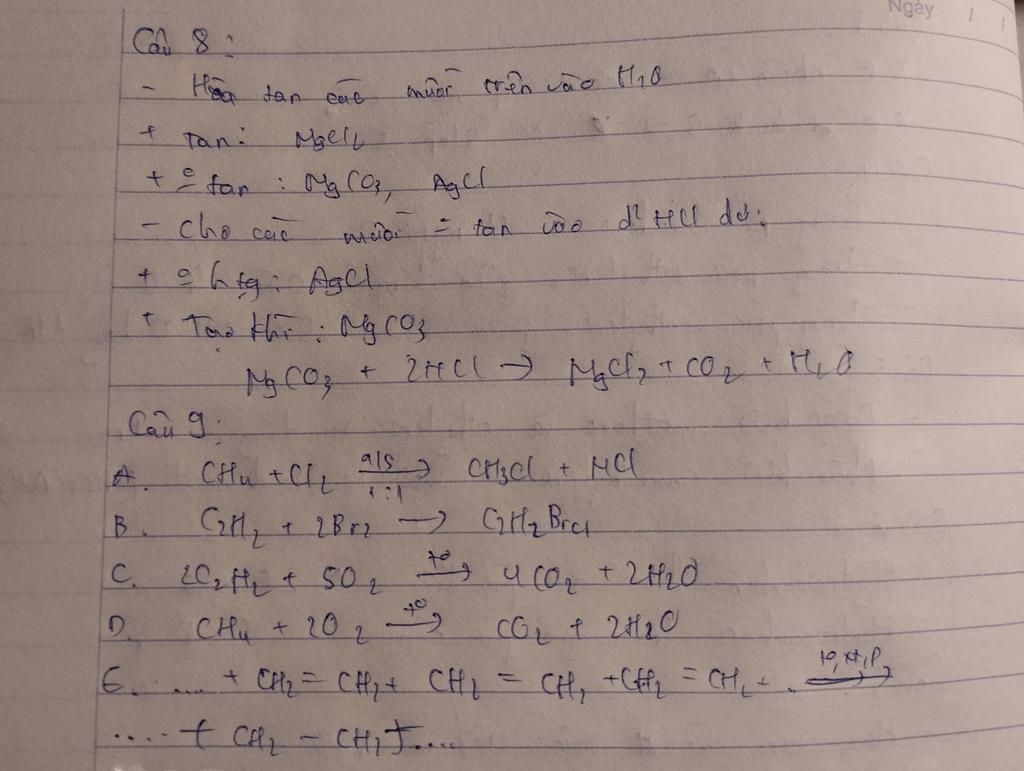 Ngày / /
Câu 8:
- Hòa tan các muối trên vào H2O
+ Tan: MgCl2
+ o tan: MgCO3, AgCl
- Cho các muối o tan vào d2 HCl dư:
+ o h tg: AgCl
+ Tạo khí: MgCO3
MgCO3 + 2HCl → MgCl2 + CO2 + H2O
Câu 9:
A. CH4 + Cl2 a/s 1:1 → CH3Cl + HCl
B. C2H2 + 2Br2 → C2H2Br4
C. 2C2H2 + 5O2 to → 4CO2 + 2H2O
D. CH4 + 2O2 to → CO2 + 2H2O
E. ..... + CH2 = CH2 + CH2 = CH2 + CH2 = CH2 + . to, xt, P →
..... + CH2 - CH2 + .....